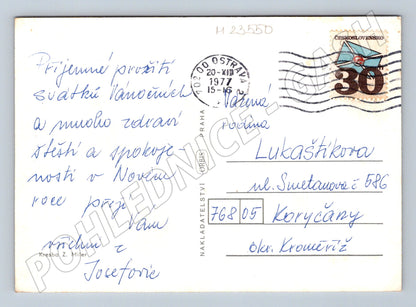 M 23550
702 00 OSTRAVA 2
20-XII
1977
15-16
ČESKOSLOVENSKO
30
Příjemné prožití
svátků Vánočních
a mnoho zdraví
štěstí a spokoje-
nosti v Novém
roce přeje
Vám
z
Josefovic
Kresba Z. Miler
NAKLADATELSTVÍ ORBIS PRAHA
Vážená
rodina
Lukaštíkova
ul. Smetanova č 586
768 05 Koryčany
okr. Kroměříž
POHLEDNICE - CASH